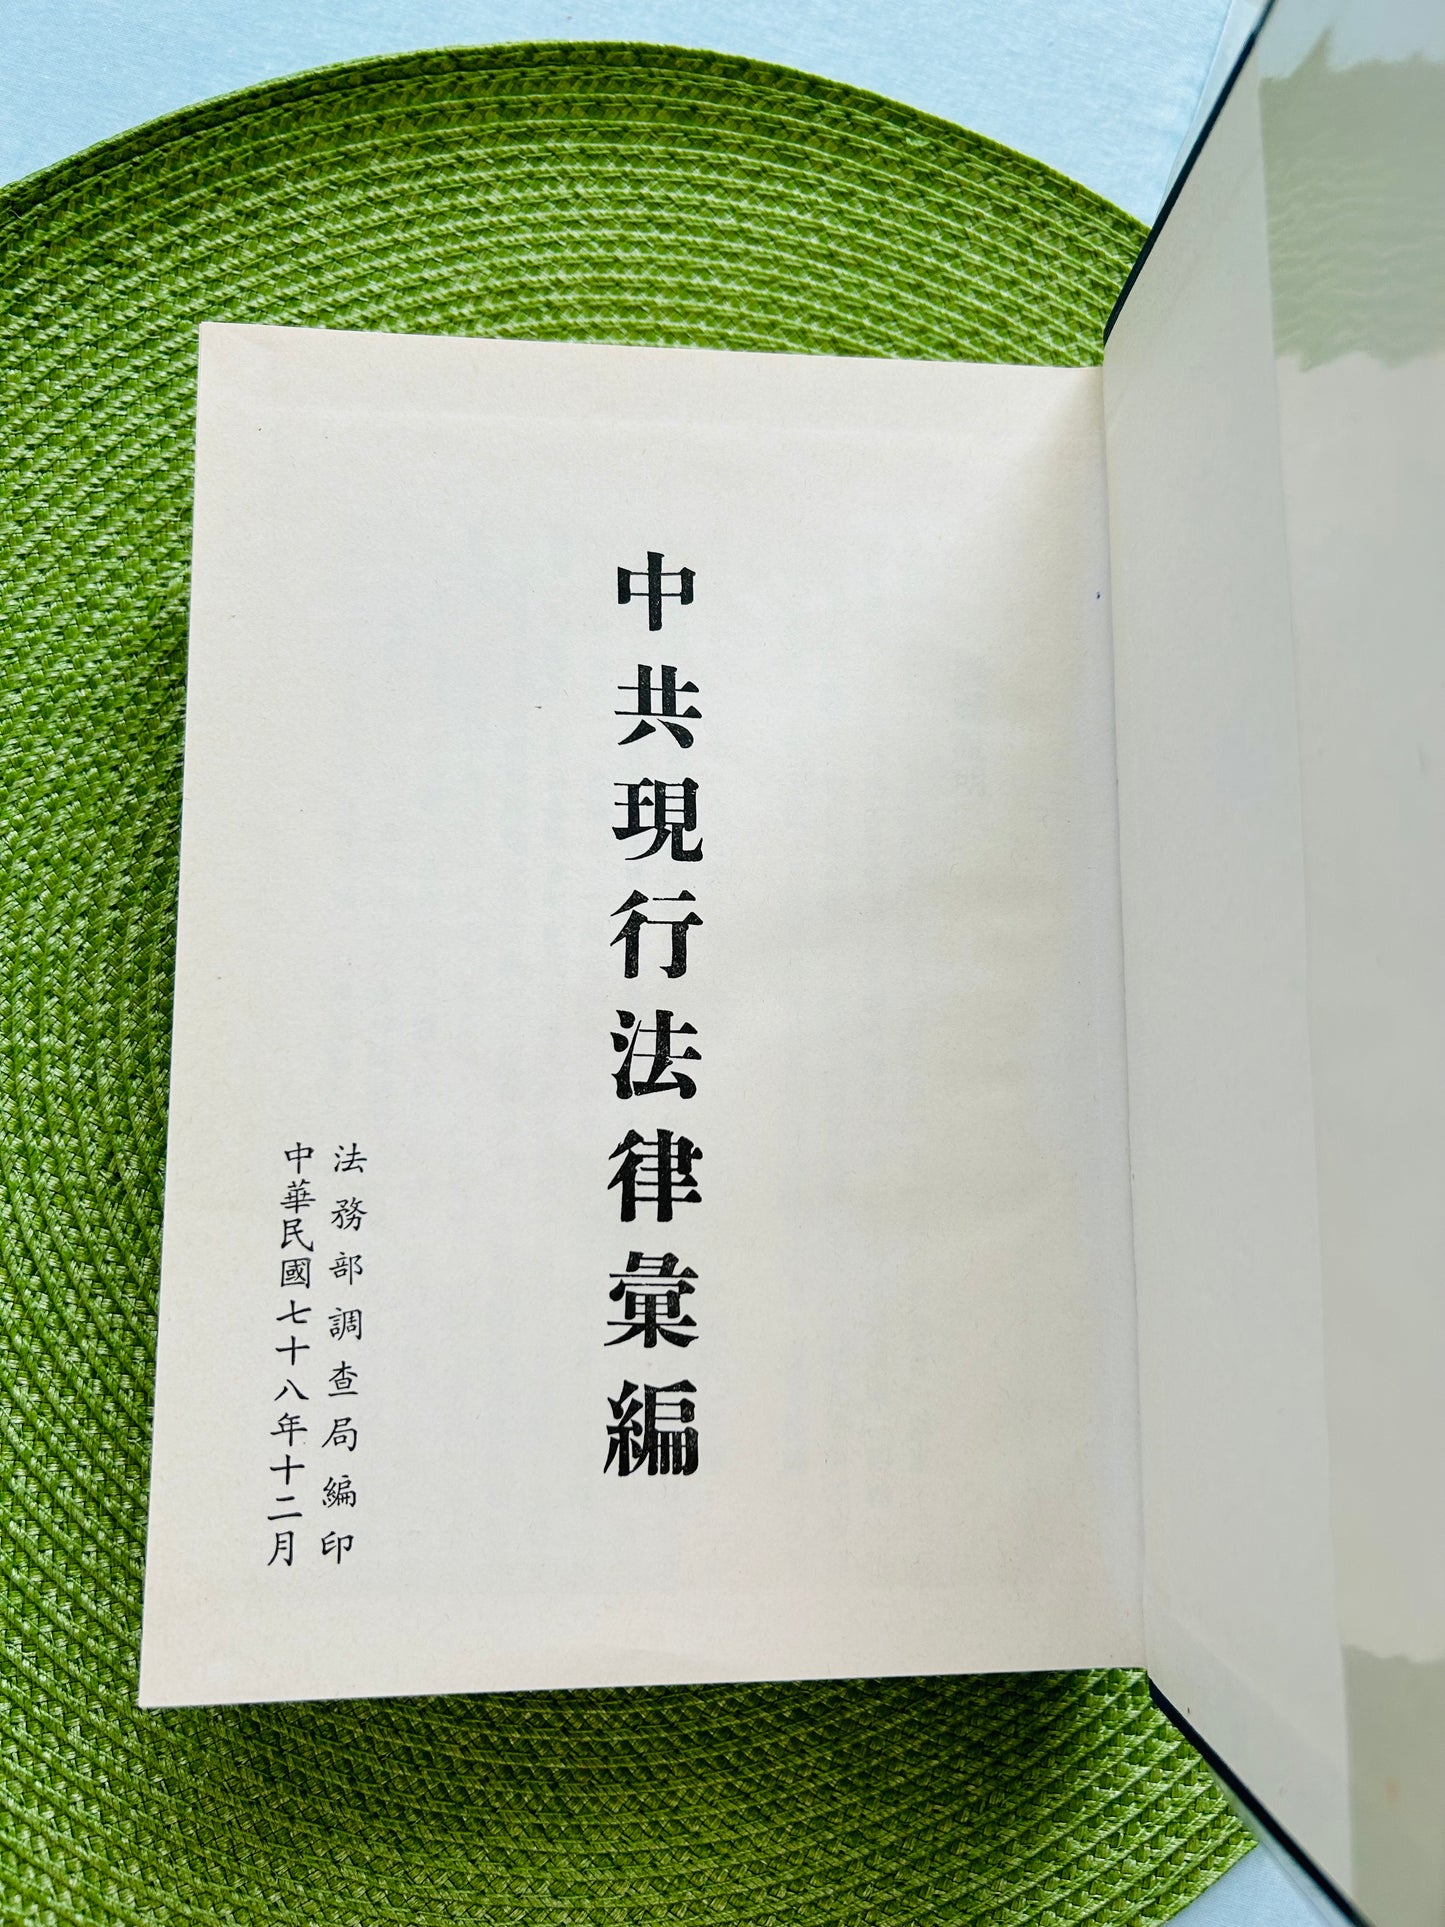 中共現行法律彙編
法務部調查局編印
中華民國七十八年十二月